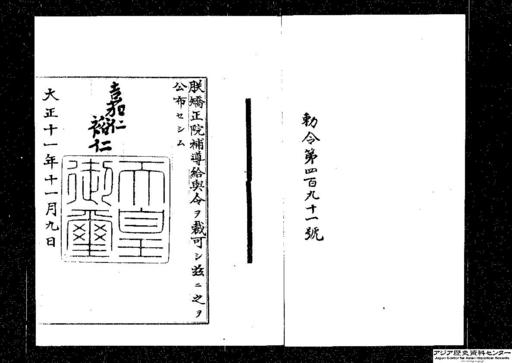 勅令第四百九十一號
朕矯正院補導給與令ヲ裁可シ玆ニ之ヲ
公布セシム
嘉仁
裕仁
天皇
御璽
大正十一年十一月九日
アジア歴史資料センター
Japan Center for Asian Historical Records